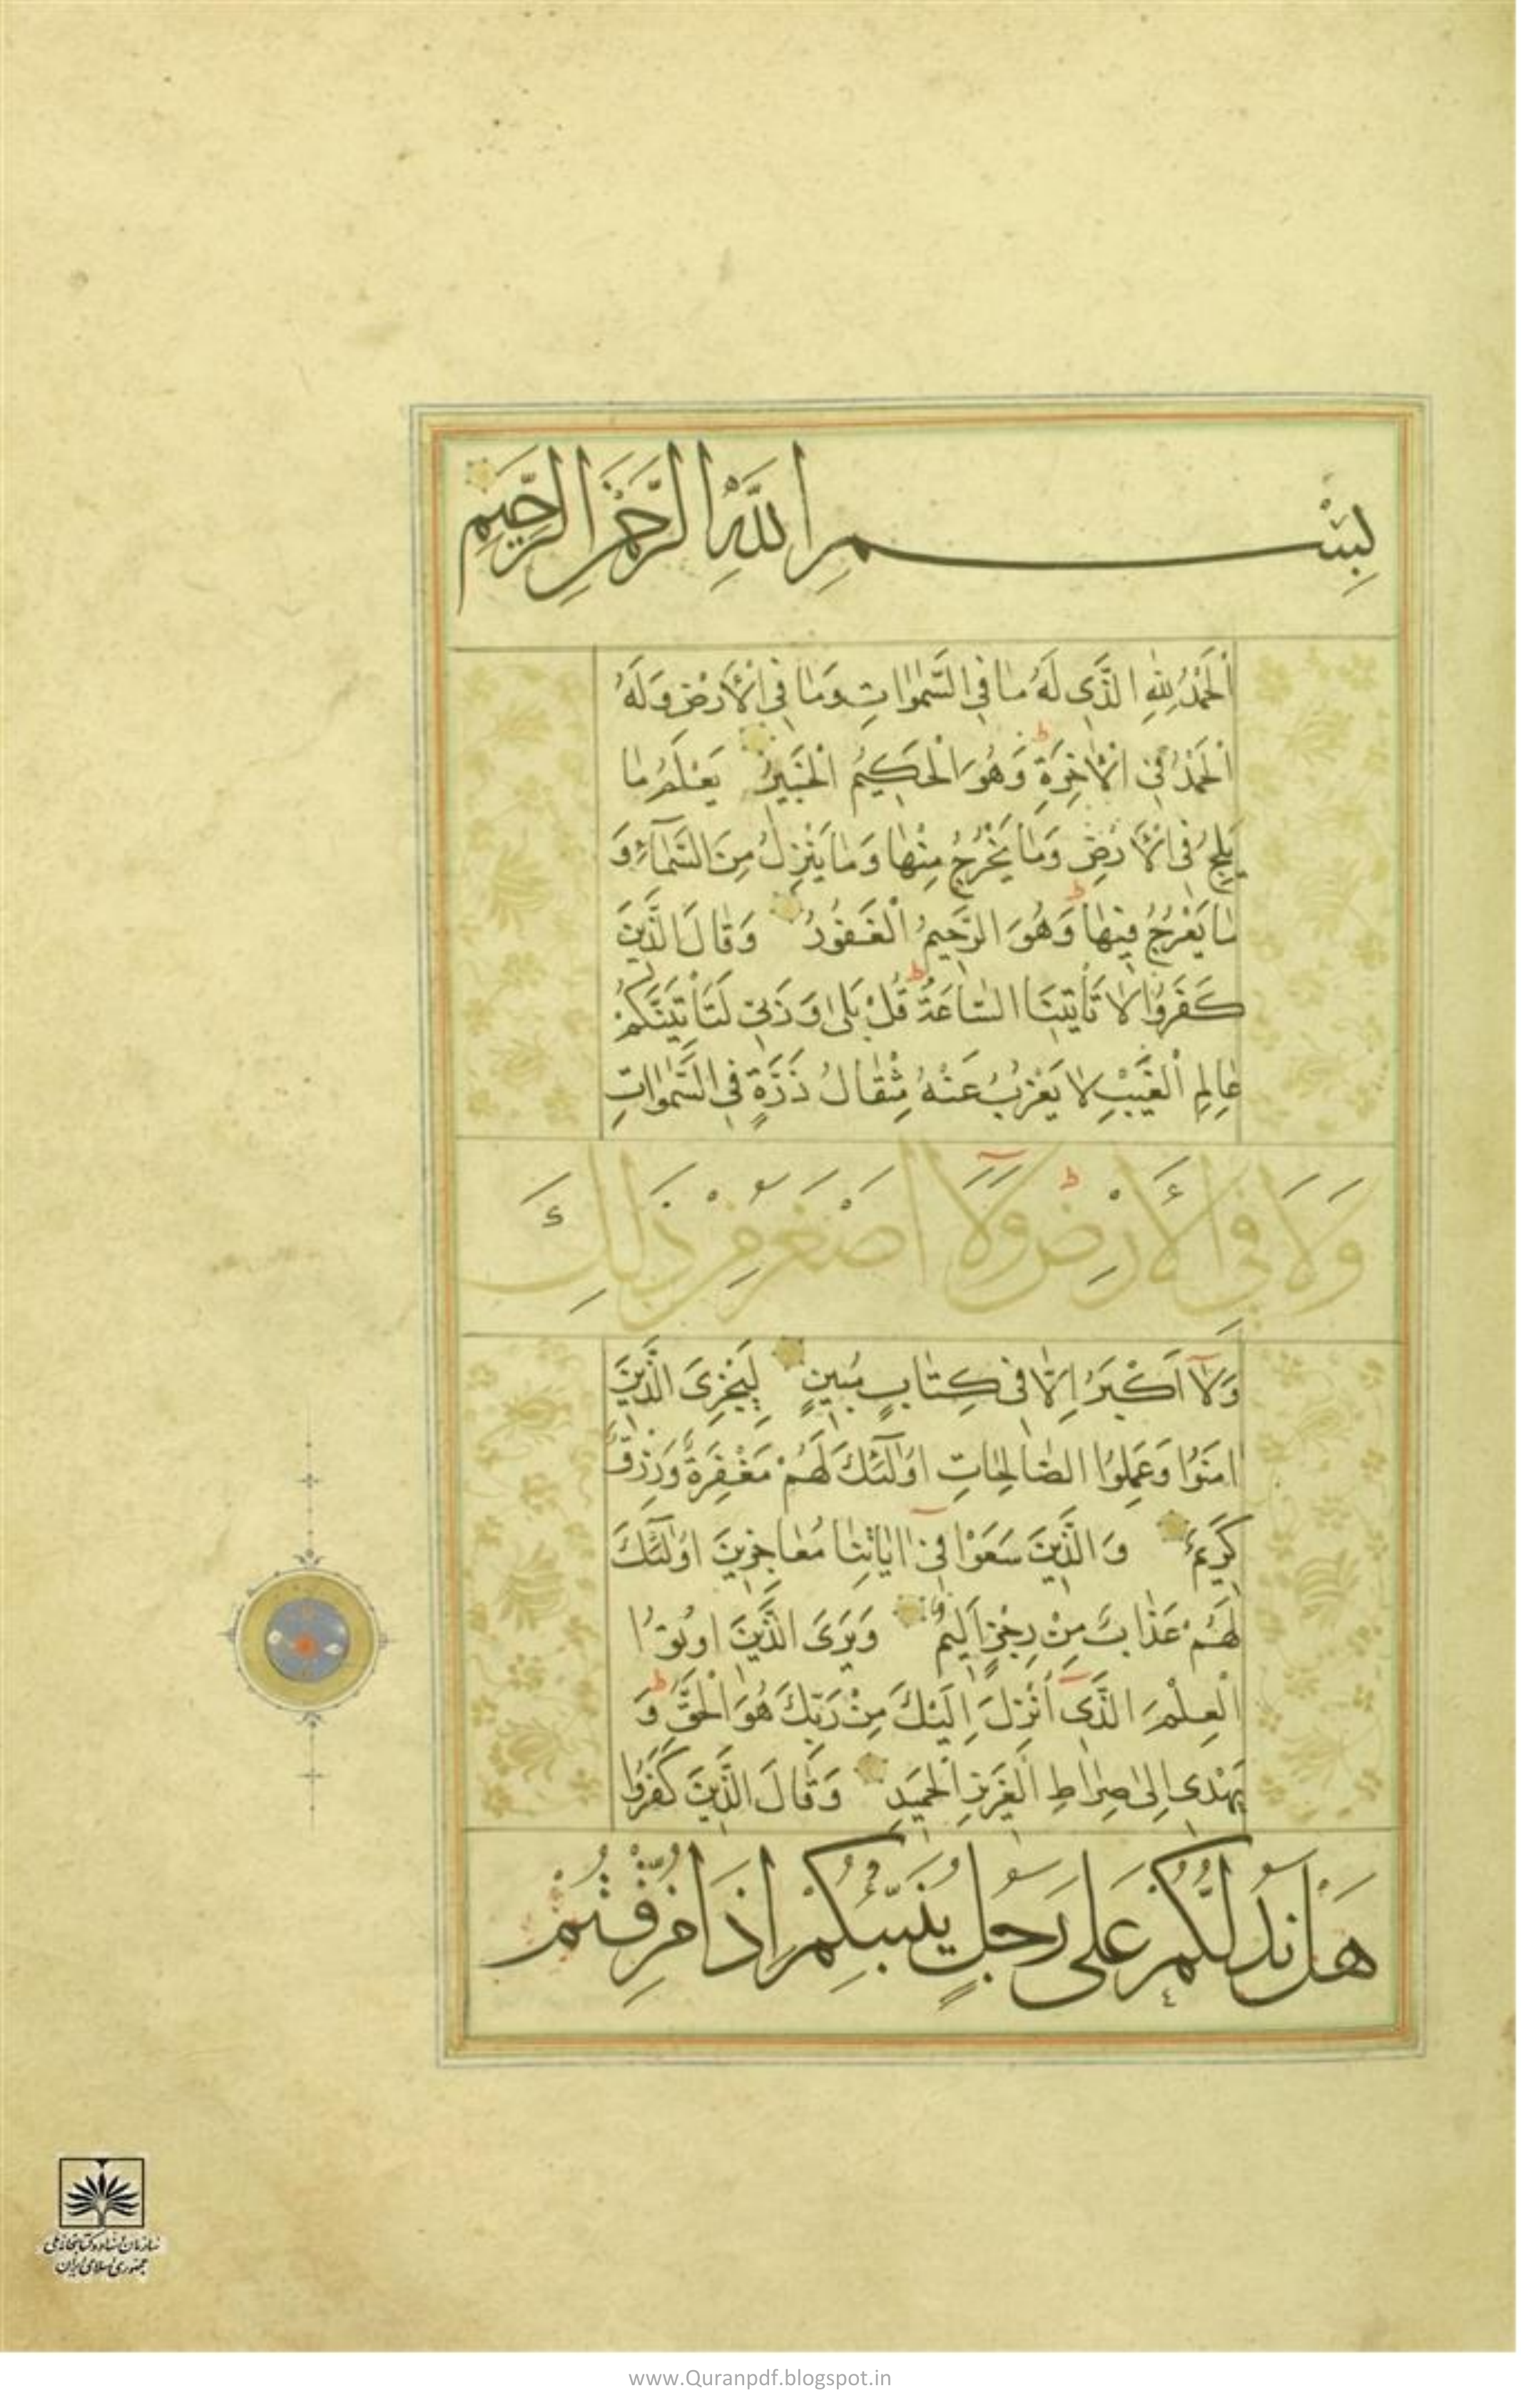 بِسْمِ اللَّهِ الرَّحْمٰنِ الرَّحِيمِ
اَلْحَمْدُ لِلّٰهِ الَّذِى لَهُ مَا فِى السَّمٰوَاتِ وَمَا فِى الْاَرْضِ وَلَهُ
الْحَمْدُ فِى الْاٰخِرَةِ ط وَهُوَ الْحَكِيمُ الْخَبِيرُ يَعْلَمُ مَا
يَلِجُ فِى الْاَرْضِ وَمَا يَخْرُجُ مِنْهَا وَمَا يَنْزِلُ مِنَ السَّمَآءِ وَ
مَا يَعْرُجُ فِيهَا ط وَهُوَ الرَّحِيمُ الْغَفُورُ وَقَالَ الَّذِينَ
كَفَرُوا لَا تَأْتِينَا السَّاعَةُ ط قُلْ بَلٰى وَرَبِّى لَتَأْتِيَنَّكُمْ
عَالِمِ الْغَيْبِ لَا يَعْزُبُ عَنْهُ مِثْقَالُ ذَرَّةٍ فِى السَّمٰوَاتِ
وَلَا فِى الْأَرْضِ ط وَلَآ اَصْغَرُ مِنْ ذَلِكَ
وَلَآ اَكْبَرُ اِلَّا فِى كِتَابٍ مُبِينٍ لِيَجْزِىَ الَّذِينَ
اٰمَنُوا وَعَمِلُوا الصَّالِحَاتِ اُولٰٓئِكَ لَهُمْ مَغْفِرَةٌ وَرِزْقٌ
كَرِيمٌ وَالَّذِينَ سَعَوْا فِىٓ اٰيَاتِنَا مُعَاجِزِينَ اُولٰٓئِكَ
لَهُمْ عَذَابٌ مِنْ رِجْزٍ اَلِيمٌ وَيَرَى الَّذِينَ اُوتُوا
الْعِلْمَ الَّذِىٓ اُنْزِلَ اِلَيْكَ مِنْ رَبِّكَ هُوَ الْحَقَّ ط وَ
يَهْدِى اِلٰى صِرَاطِ الْعَزِيزِ الْحَمِيدِ وَقَالَ الَّذِينَ كَفَرُوا
هَلْ نَدُلُّكُمْ عَلٰى رَجُلٍ يُنَبِّئُكُمْ اِذَا مُزِّقْتُمْ
سازمان اسناد و کتابخانه ملی
جمهوری اسلامی ایران
www.Quranpdf.blogspot.in